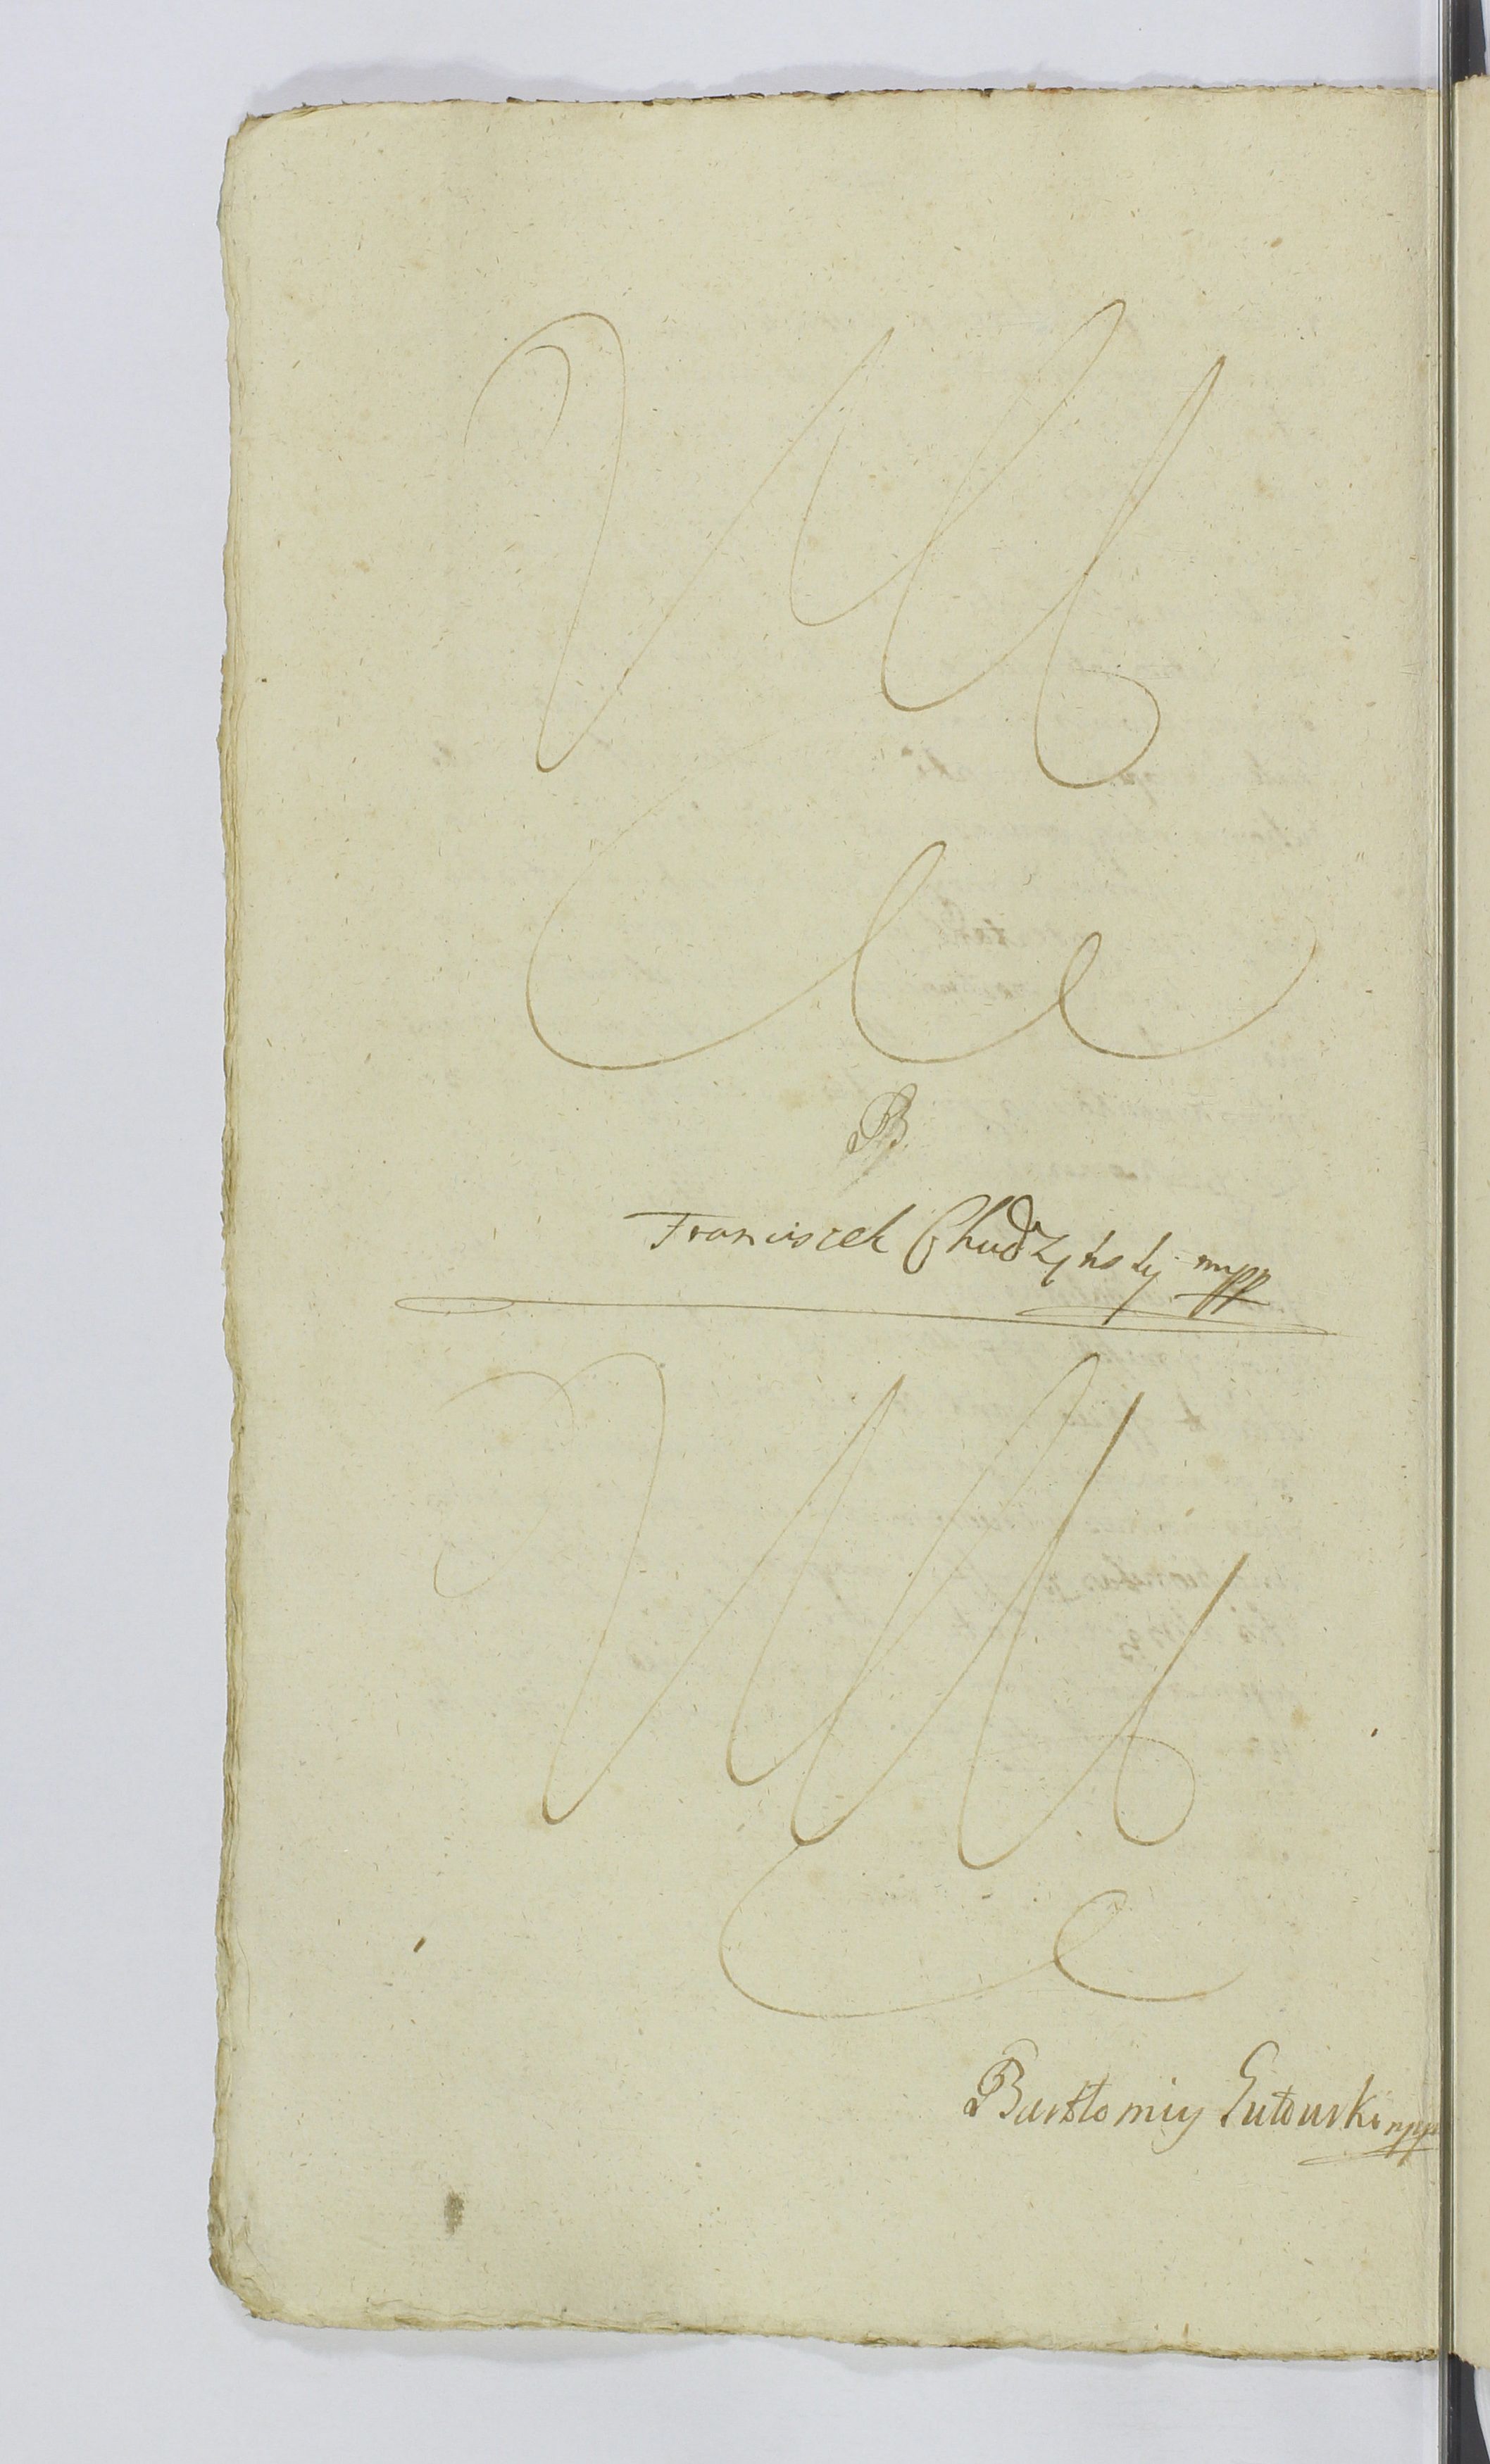 B
Franciscek Chudzÿnsky mpp
Bartłomiy Gutowski mpp